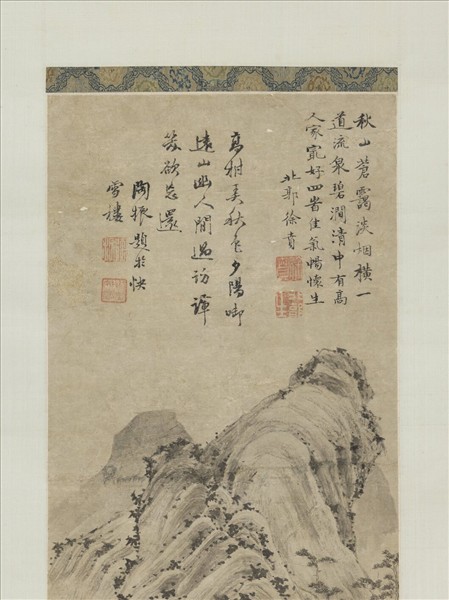 秋山蒼靄淡烟橫一
道流泉碧澗清中有高
人家寔好四峕佳氣暢懷生
北郭徐賁
高樹美秋色夕陽啣
遠山幽人閒過訪譚
笑欲忘還
陶振題於快
雪樓